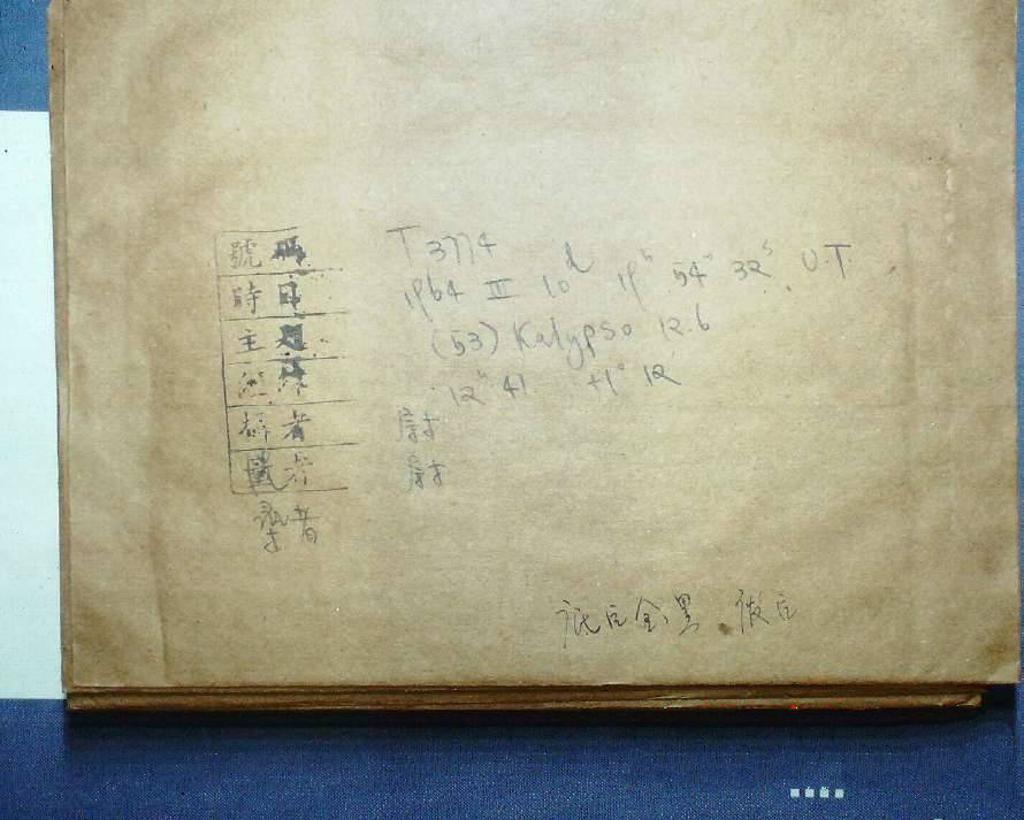 號碼 T 3774
時日 1964 III 10ᵈ 19ʰ 54ᵐ 32ˢ U.T.
主題 (53) Kalypso 12.6
12ʰ 41 +1° 12
者
者
者
底片全黑